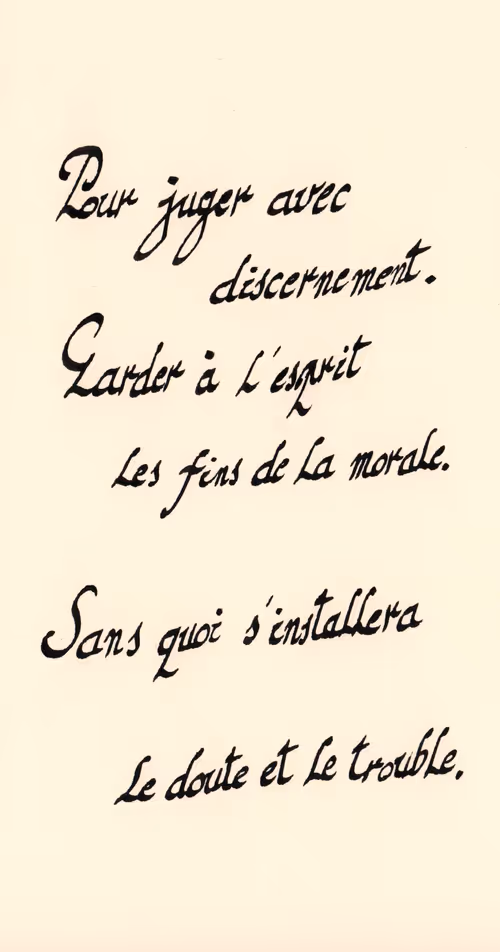 Pour juger avec
discernement.
Garder à l'esprit
les fins de la morale.
Sans quoi s'installera
le doute et le trouble.